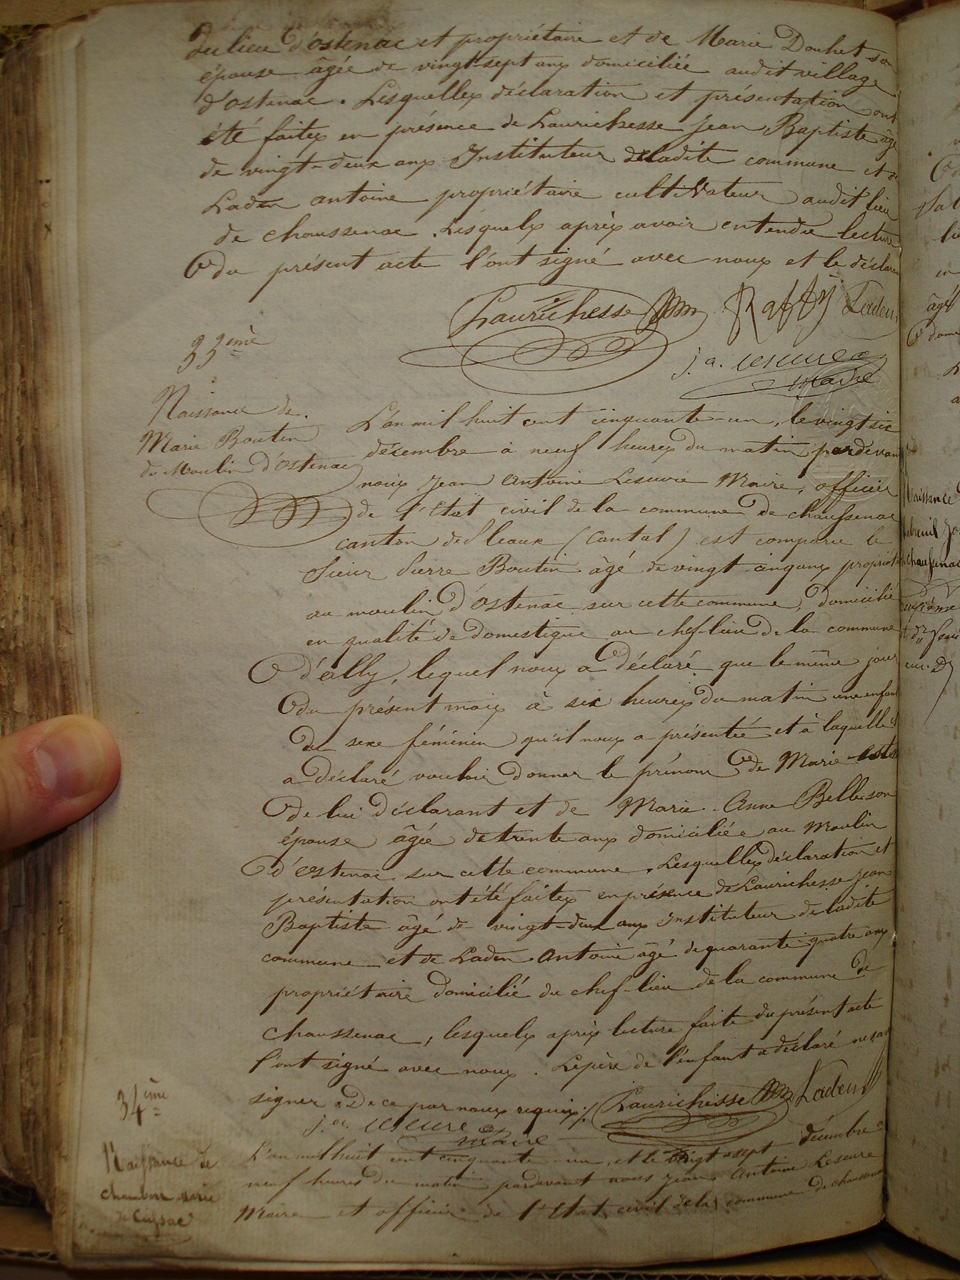 du lieu d'ostenac et propriétaire et de Marie Douhet son
épouse âgée de vingt-sept ans domiciliée audit village
d'ostenac. Lesquelles déclaration et présentation ont
été faites en présence de Laurichesse Jean Baptiste âgé
de vingt-deux ans Instituteur de ladite commune et de
Laden antoine propriétaire cultivateur audit lieu
de chaussenac. Lesquels après avoir entendu lecture
du présent acte l'ont signé avec nous et le déclarant
Laurichesse Raffy Laden
j. a. Leseure
maire
33ème
Naissance de
Marie Boutin
du Moulin d'ostenac
L'an mil huit cent cinquante-un, le vingt six
désembre à neuf heures du matin pardevant
nous Jean Antoine Leseure Maire, officier
de l'Etat civil de la commune de chaussenac
canton de Pleaux (Cantal) est comparu le
Sieur Pierre Boutin âgé de vingt cinq ans propriét
au moulin d'ostenac sur cette commune, domicilié
en qualité de domestique au chef-lieu de la commune
d'ally, lequel nous a déclaré que le même jour
du présent mois à six heures du matin une enfant
du sexe féminin qu'il nous a présentée et à laquelle il
a déclaré vouloir donner le prénom de Marie
de lui déclarant et de Marie-Anne Belle son
épouse âgée de trente ans domiciliée au Moulin
d'ostenac sur cette commune. Lesquelles déclaration et
présentation ont été faites en présence de Laurichesse jean
Baptiste âgé de vingt-deux ans Instituteur de ladite
commune et de Laden Antoine âgé de quarante quatre ans
propriétaire domicilié du chef-lieu de la commune de
chaussenac, lesquels après lecture faite du présent acte
l'ont signé avec nous. Le père de l'enfant a déclaré ne savoir
signer de ce par nous requis. Laurichesse Laden
j. a. Leseure
maire
34ème
Naissance de
chambon marie
de Cussac
L'an mil huit cent cinquante-un, et le vingt sept décembre à
neuf heures du matin pardevant nous Jean Antoine Leseure
Maire et officier de l'Etat civil de la commune de chaussenac